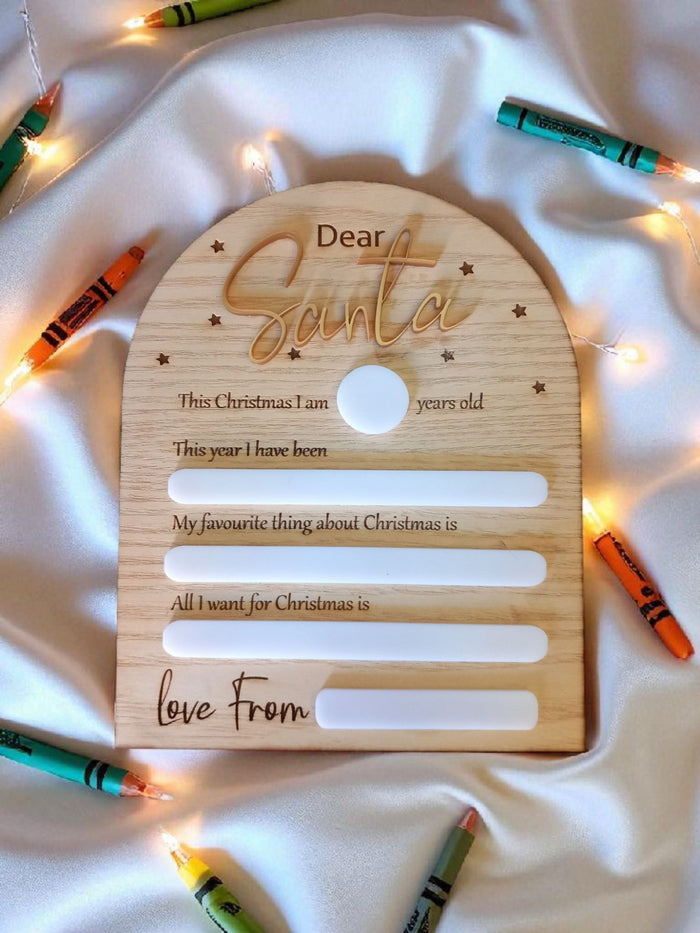 Dear
Santa
This Christmas I am years old
This year I have been
My favourite thing about Christmas is
All I want for Christmas is
love From